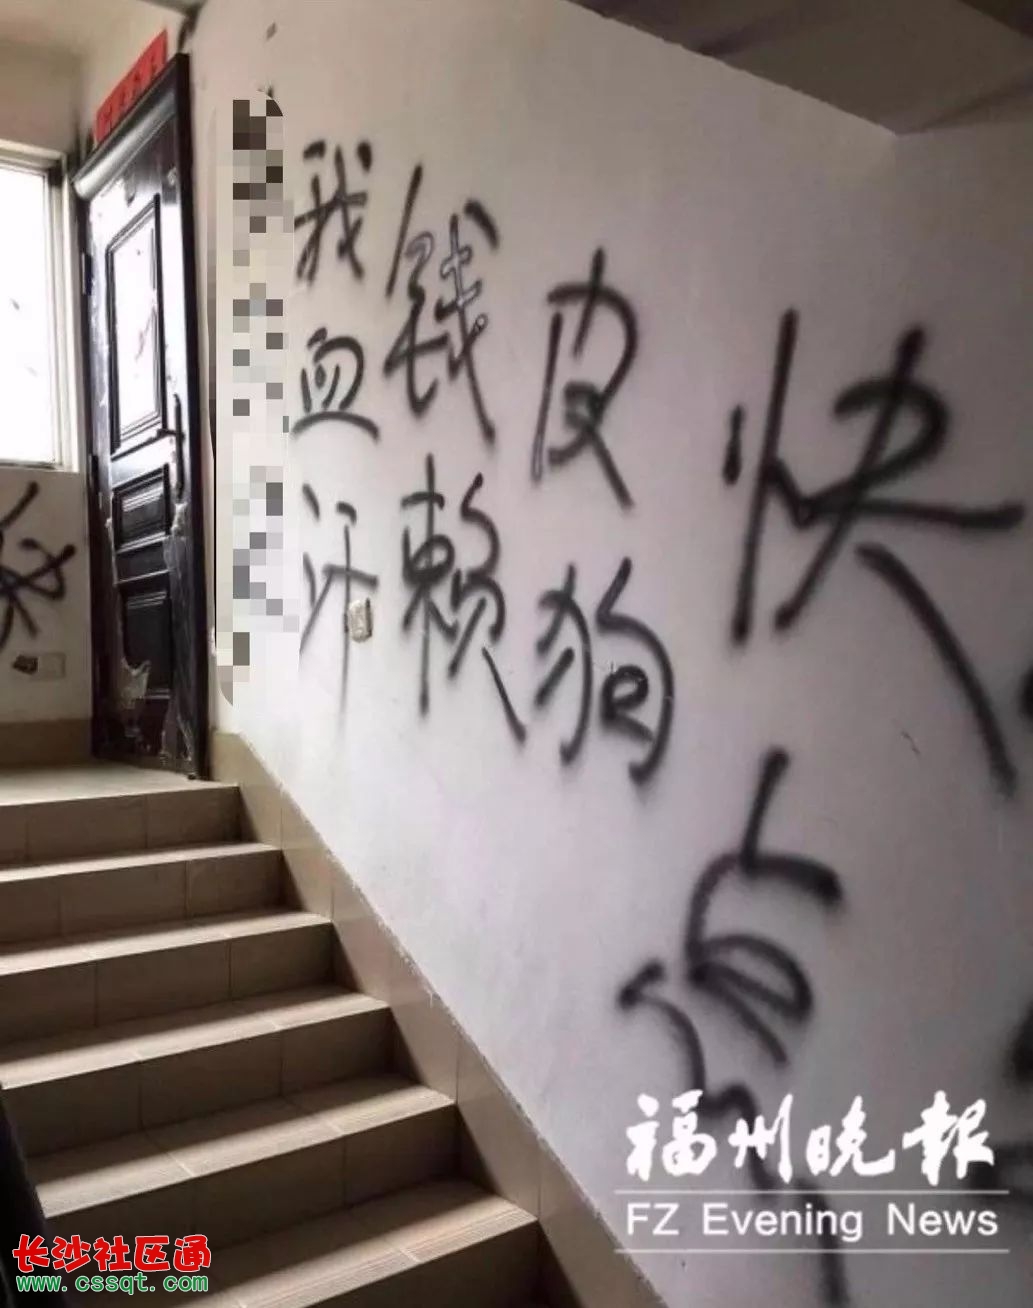 我血汗
钱赖
皮狗
快点
福州晚報
FZ Evening News
长沙社区通
www.cssqt.com